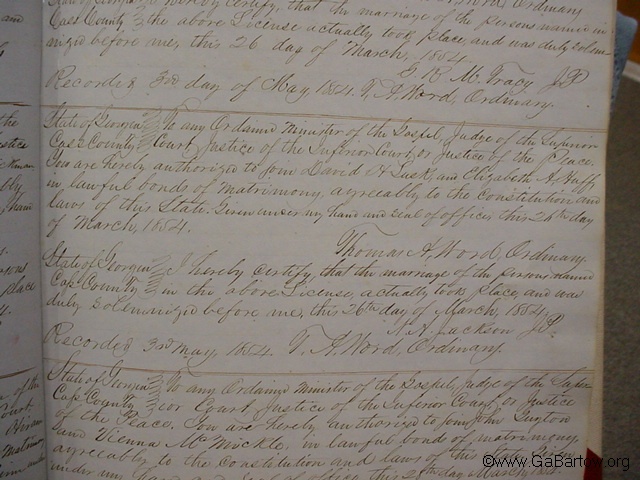 State of Georgia I hereby certify, that the marriage of the persons named in
Cass County the above License actually took place, and was duly solem-
nized before me, this 26 day of March, 1854.
M. Tracy J.P.
Recorded 3rd day of May, 1854. T. A. Word, Ordinary.
State of Georgia To any Ordained Minister of the Gospel, Judge of the Superior
Cass County Court, Justice of the Inferior Court, or Justice of the Peace.
You are hereby authorized to join David H Lusk, and Elizabeth A. Huff,
in lawful bonds of matrimony, agreeably to the constitution and
laws of this State. Given under my hand and seal of office, this 24th day
of March, 1854.
Thomas A. Word, Ordinary.
State of Georgia I hereby certify, that the marriage of the persons named
Cass County in the above License, actually took place, and was
duly solemnized before me, this 26th day of March, 1854.
A. Jackson J.P.
Recorded 3rd May, 1854. T. A. Word, Ordinary.
State of Georgia To any Ordained Minister of the Gospel, Judge of the Super-
Cass County ior Court, Justice of the Inferior Court, or Justice
of the Peace. You are hereby authorized to join John Guyton
and Vienna McMickle, in lawful bonds of matrimony,
agreeably to the constitution and laws of this State. Given
under my hand and seal of office, this day March
©www.GaBartow.org